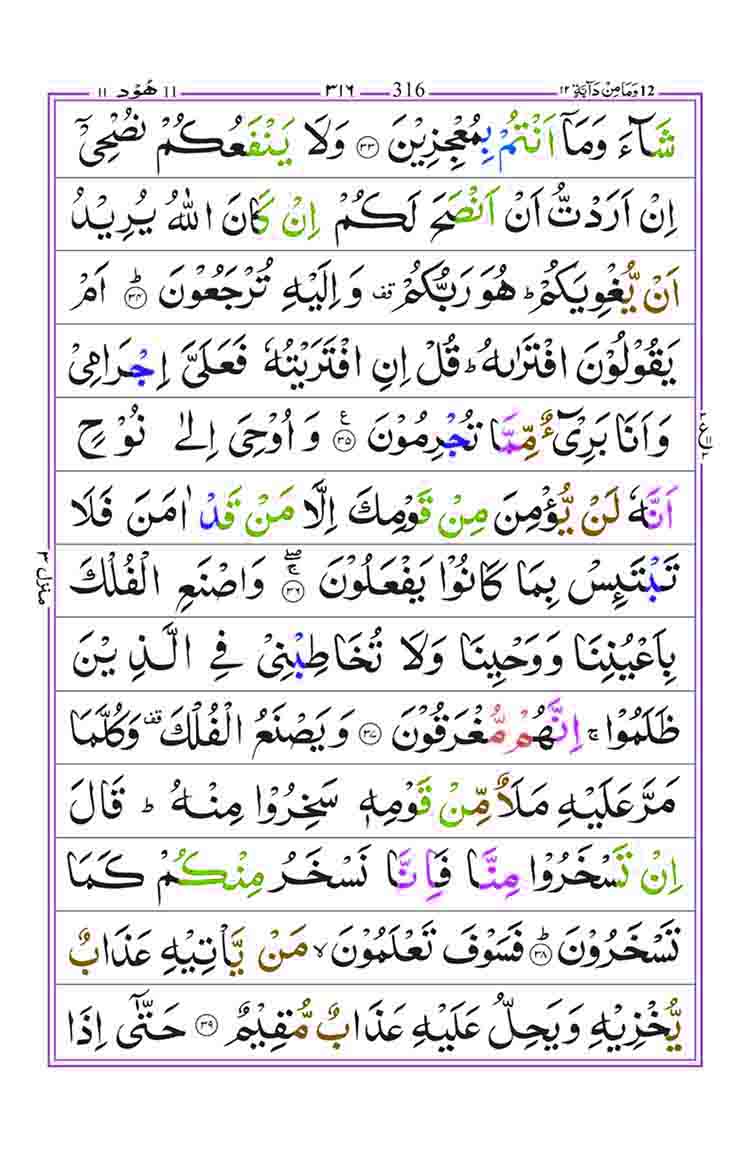 12 وَمَا مِنْ دَآبَّةٍ ۱۲ 316 ۳۱۶ 11 هُوْد ۱۱
شَآءَ وَمَاۤ اَنْتُمْ بِمُعْجِزِيْنَ ۝۳۳ وَلَا يَنْفَعُكُمْ نُصْحِيْۤ
اِنْ اَرَدْتُّ اَنْ اَنْصَحَ لَكُمْ اِنْ كَانَ اللّٰهُ يُرِيْدُ
اَنْ يُّغْوِيَكُمْ ؕ هُوَ رَبُّكُمْ قف وَاِلَيْهِ تُرْجَعُوْنَ ؕ ۝۳۴ اَمْ
يَقُوْلُوْنَ افْتَرٰىهُ ؕ قُلْ اِنِ افْتَرَيْتُهٗ فَعَلَيَّ اِجْرَامِيْ
وَاَنَا بَرِيْٓءٌ مِّمَّا تُجْرِمُوْنَ ۝۳۵ ع وَاُوْحِيَ اِلٰى نُوْحٍ
اَنَّهٗ لَنْ يُّؤْمِنَ مِنْ قَوْمِكَ اِلَّا مَنْ قَدْ اٰمَنَ فَلَا
تَبْتَئِسْ بِمَا كَانُوْا يَفْعَلُوْنَ ۝۳۶ ۚۖ وَاصْنَعِ الْفُلْكَ
منزل ۳
بِاَعْيُنِنَا وَوَحْيِنَا وَلَا تُخَاطِبْنِيْ فِي الَّذِيْنَ
ظَلَمُوْا ۚ اِنَّهُمْ مُّغْرَقُوْنَ ۝۳۷ وَيَصْنَعُ الْفُلْكَ قف وَكُلَّمَا
مَرَّ عَلَيْهِ مَلَاٌ مِّنْ قَوْمِهٖ سَخِرُوْا مِنْهُ ؕ قَالَ
اِنْ تَسْخَرُوْا مِنَّا فَاِنَّا نَسْخَرُ مِنْكُمْ كَمَا
تَسْخَرُوْنَ ؕ ۝۳۸ فَسَوْفَ تَعْلَمُوْنَ ۙ مَنْ يَّاْتِيْهِ عَذَابٌ
يُّخْزِيْهِ وَيَحِلُّ عَلَيْهِ عَذَابٌ مُّقِيْمٌ ۝۳۹ حَتّٰۤى اِذَا